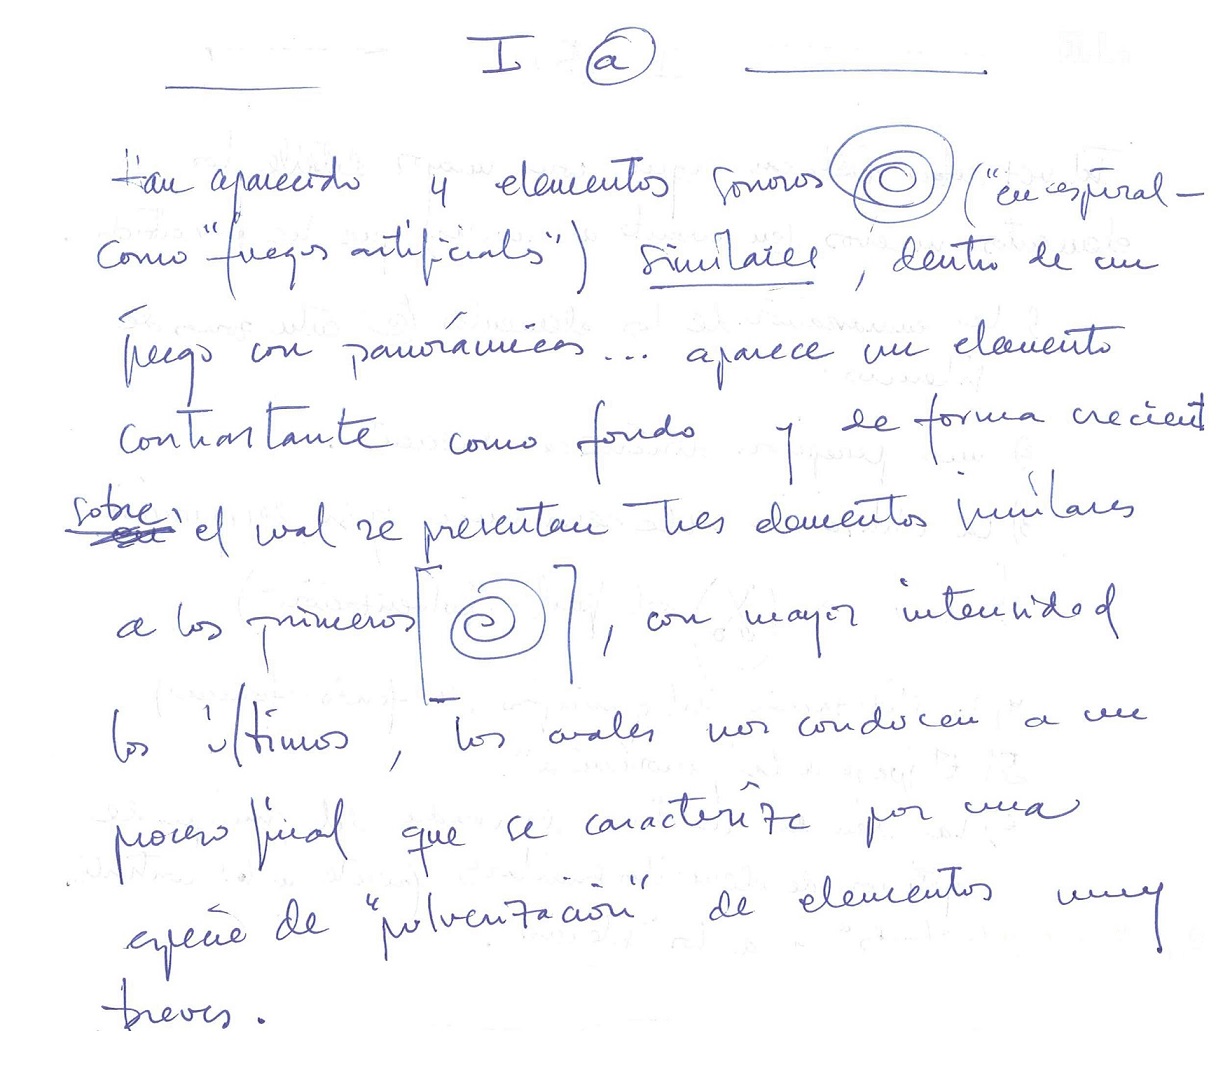 I a
Han aparecido 4 elementos sonoros ("en espiral -
como "fuegos artificiales") similares, dentro de un
juego con panorámicas... aparece un elemento
contrastante como fondo y de forma crecient
sobre el cual se presentan tres elementos similares
a los primeros [ ], con mayor intensidad
los últimos, los cuales nos conducen a un
proceso final que se caracteriza por una
especie de "pulverización" de elementos muy
breves.